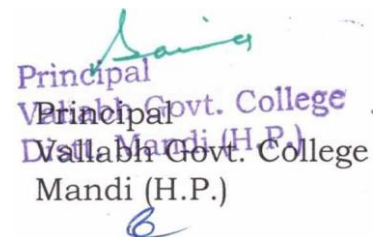 Principal
Vallabh Govt. College
Distt. Mandi (H.P.)
Principal
Vallabh Govt. College
Mandi (H.P.)